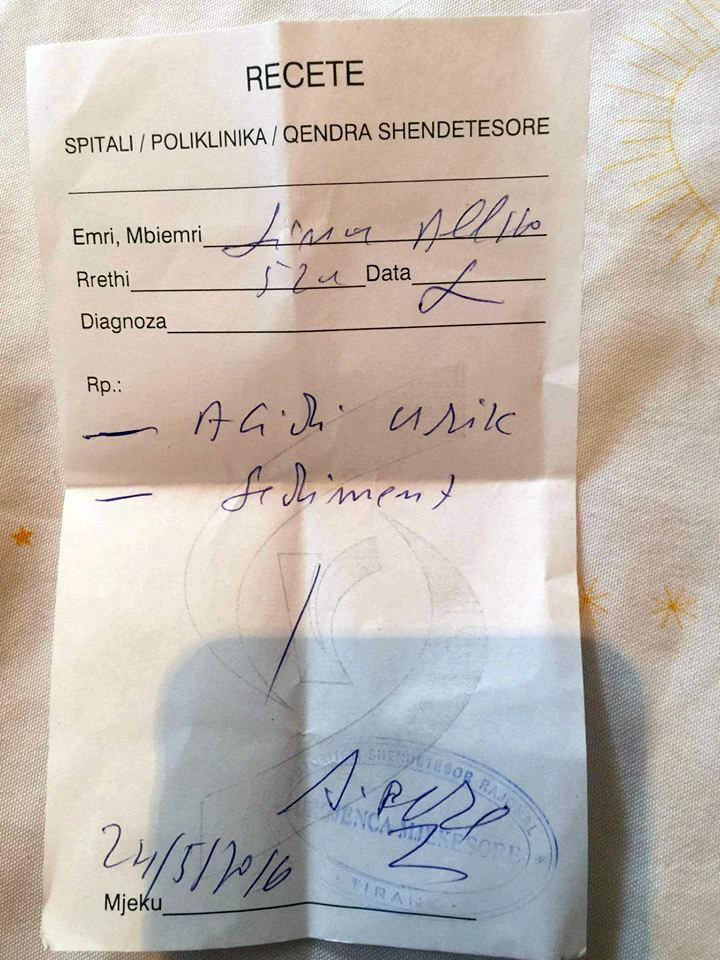 RECETE
SPITALI / POLIKLINIKA / QENDRA SHENDETESORE
Emri, Mbiemri
Rrethi Data
Diagnoza
Rp.:
— Acidi urik
— Sediment
SHENDETESOR RAJONAL
MJEKESORE
TIRANE
24/5/2016
Mjeku